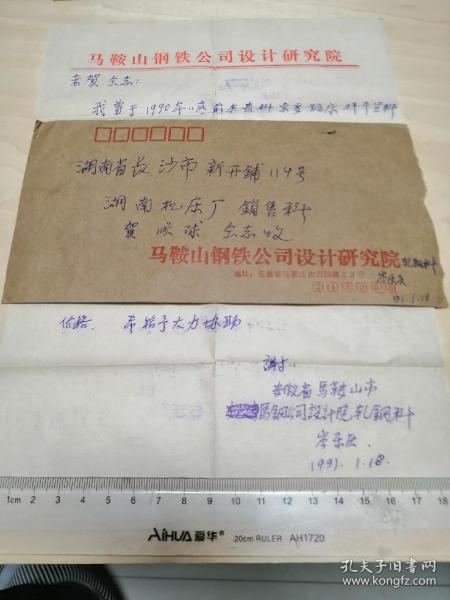 马鞍山钢铁公司设计研究院
老贺仝志:
我曾于1990年11底前去贵州
湖南省长沙市新开鋪119号
湖南机床厂 銷售科
贺 顺 球 仝志收
马鞍山钢铁公司设计研究院 轧鋼科
地址:安徽省马鞍山市
岑乐庆
91.1.18
希給予大力协助
謝!
安徽省馬鞍山市
馬鋼公司設計院轧鋼科
岑乐庆.
1991.1.18.
1cm 2 3 4 5 6 7 8 9 10 11 12 13 14 15 16 17 18
AIHUA 爱华® 20cm RULER AH1720
孔夫子旧书网
www.kongfz.com